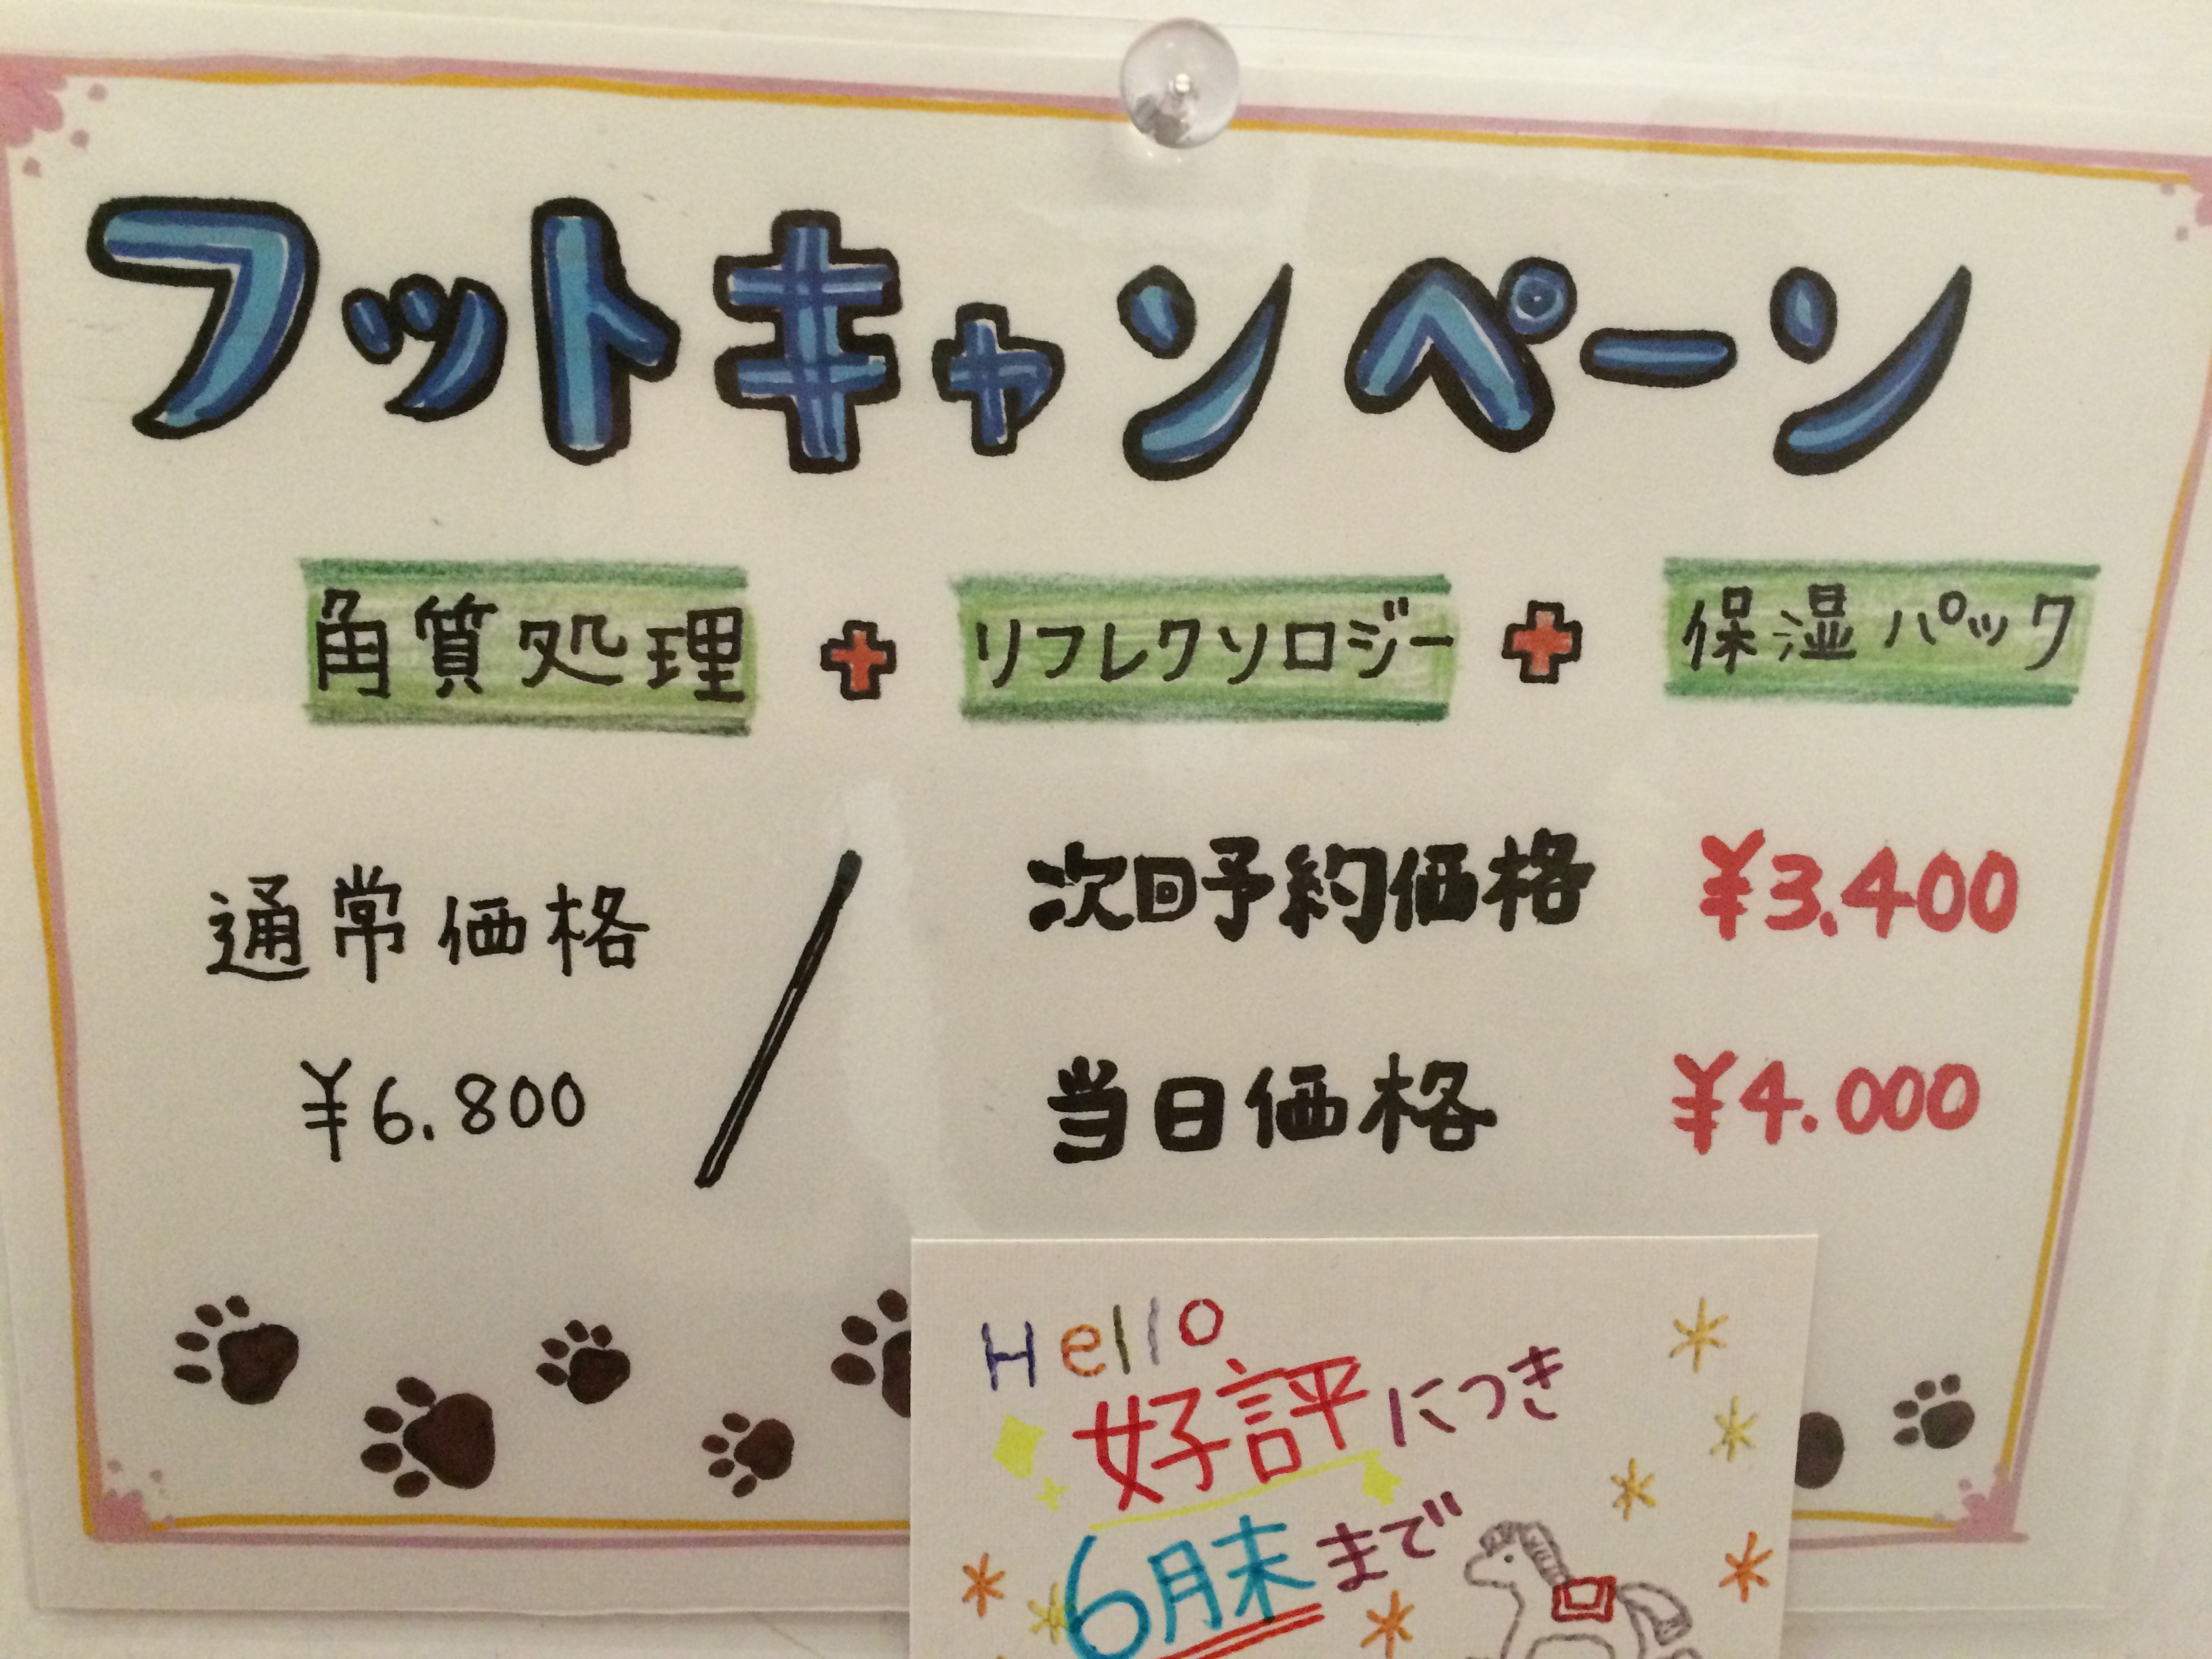 フットキャンペーン
角質処理 + リフレクソロジー + 保湿パック
通常価格
¥6.800
次回予約価格 ¥3.400
当日価格 ¥4.000
Hello
好評につき
6月末まで